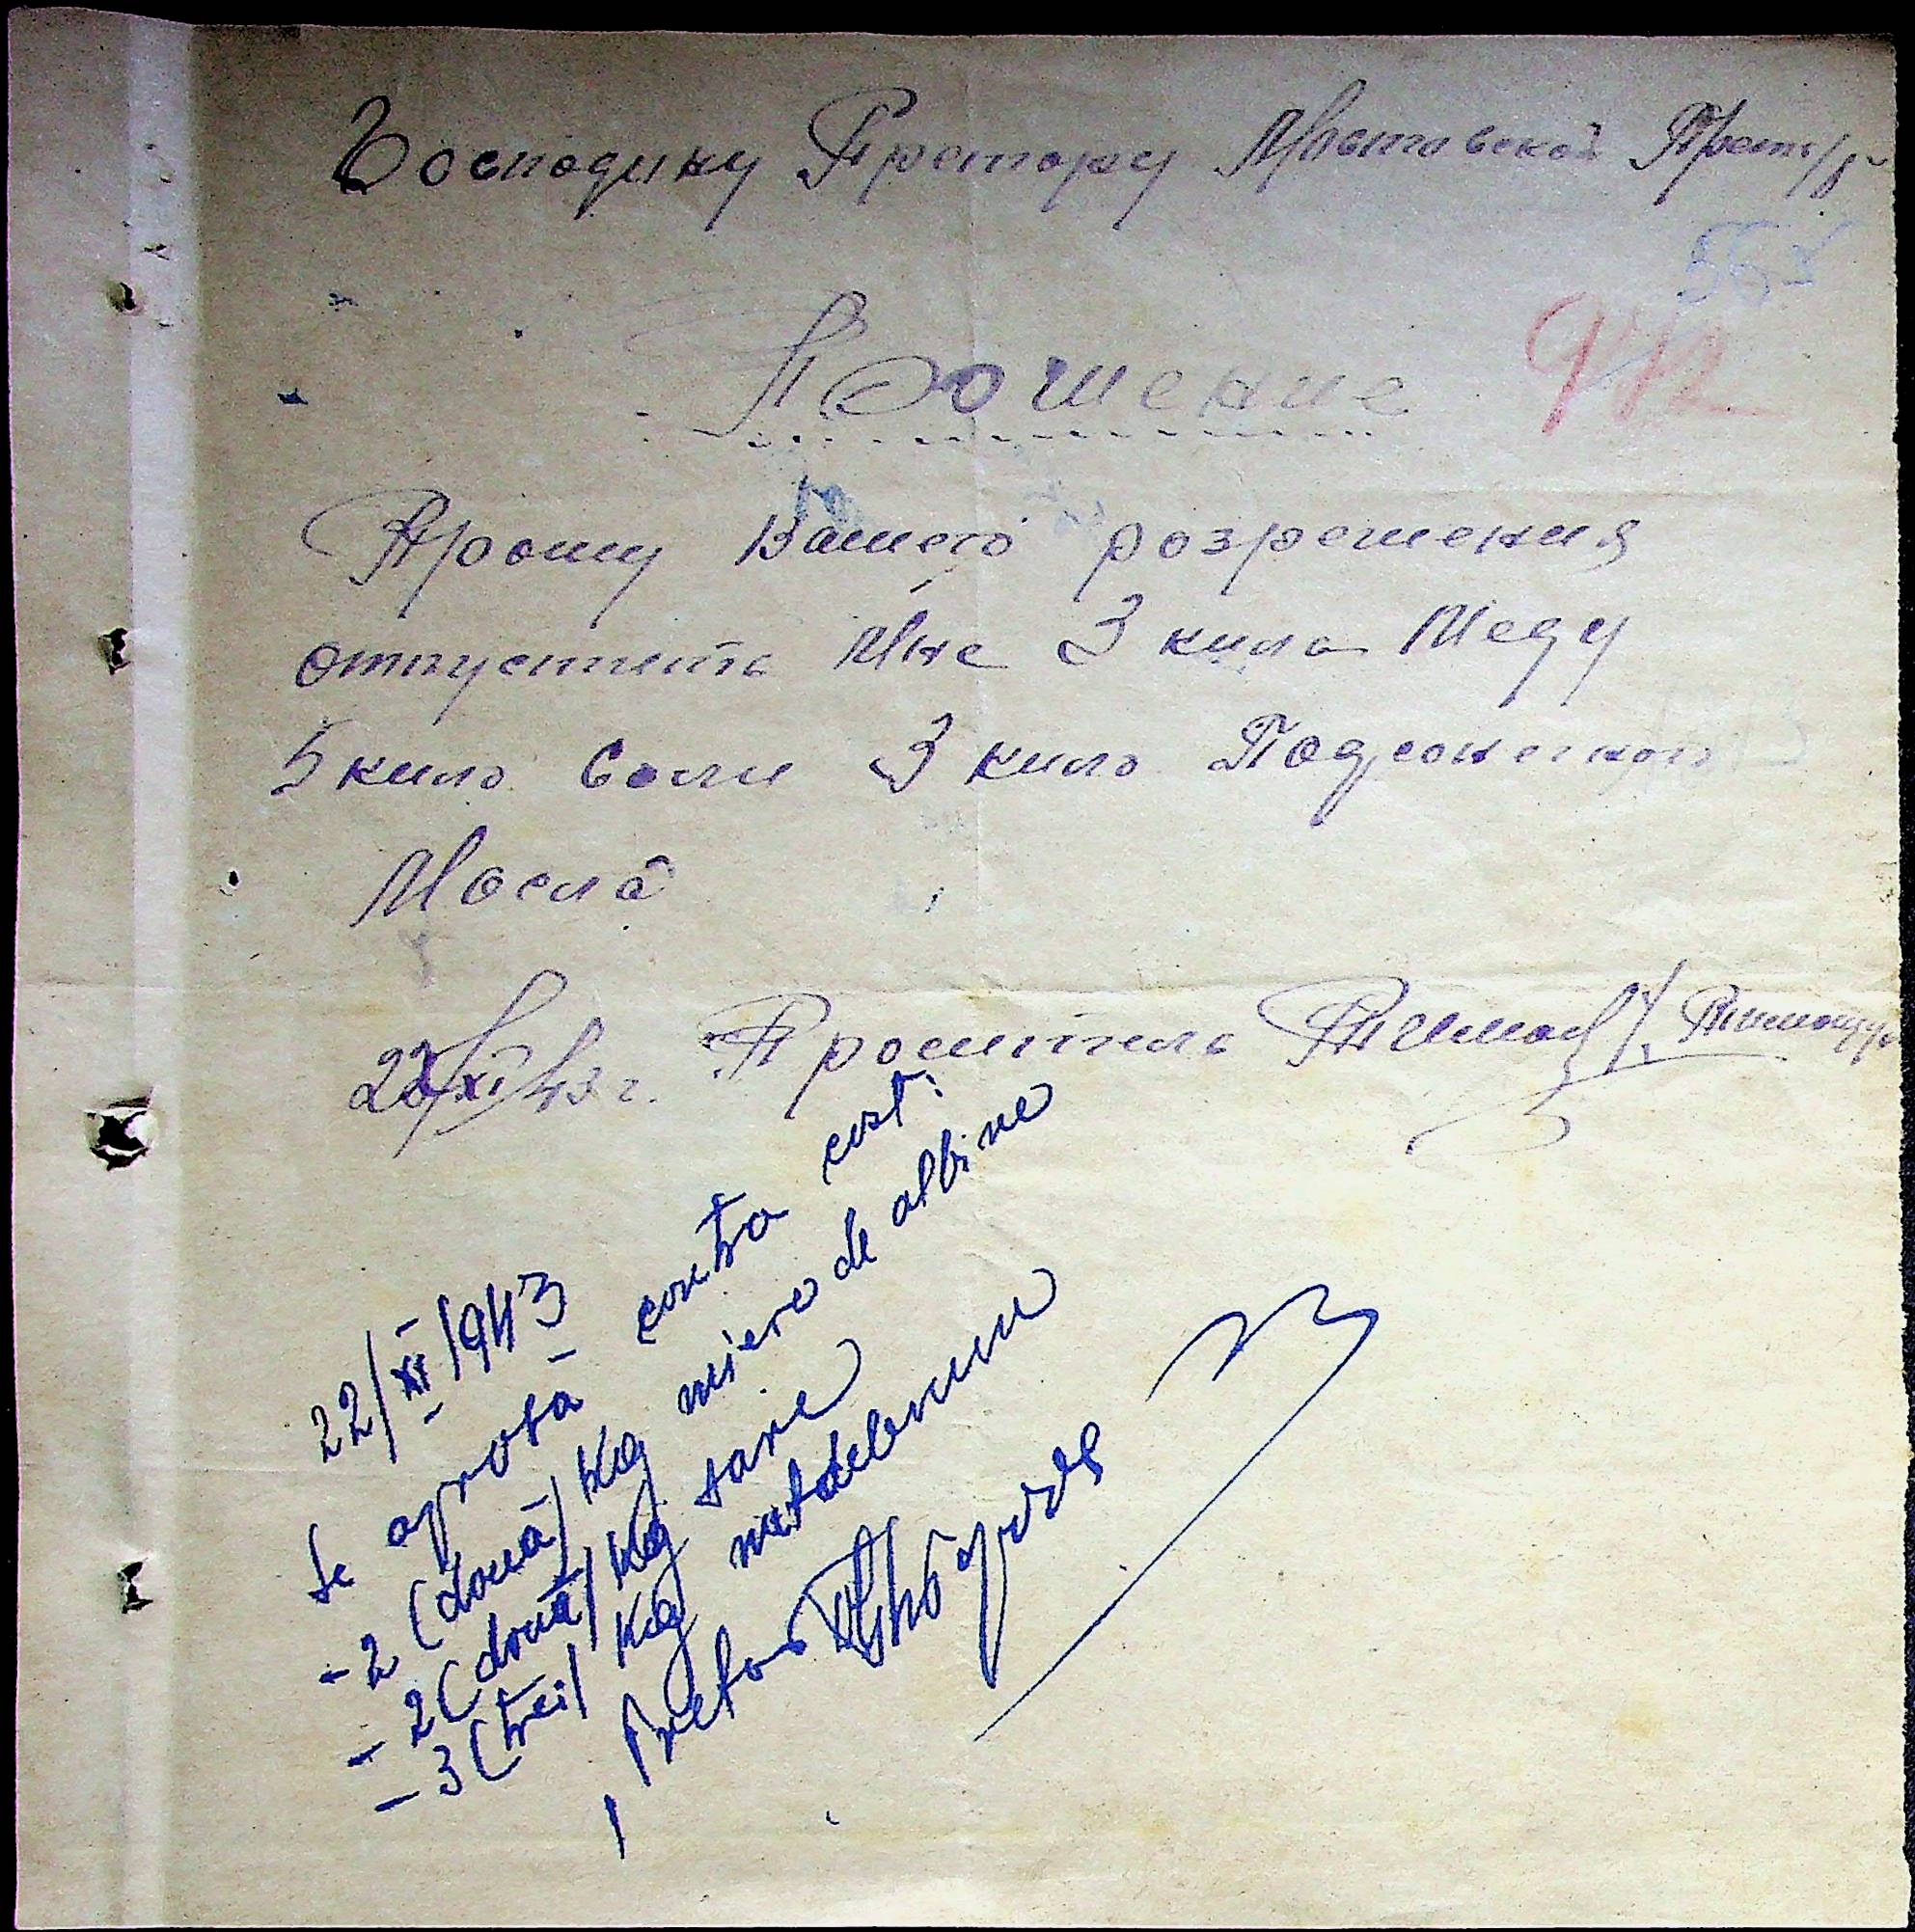 Господину Претору Мостовской
942
Прошение
Прошу Вашего розрешения
отпустить Мне 3 кила Меду
5 кило Соли 3 кило Подсонечного
Масла
22/XI 43 г. Проситель
22/XI/943
Se aprobă - contra cost:
- 2 (două) Kg miere de albine
- 2 (două) Kg sare
- 3 (trei) Kg untdelemn
Pretor